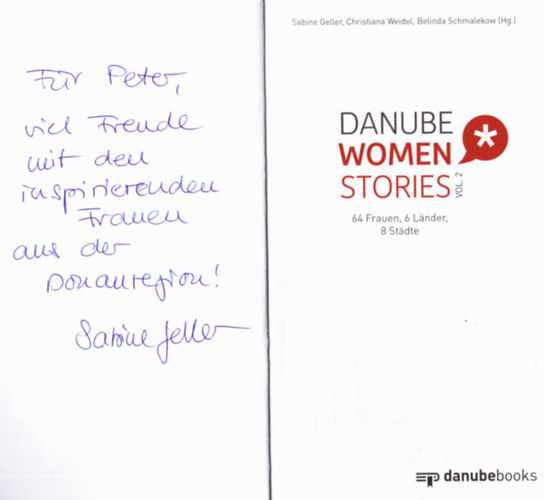 Für Peter,
viel Freude
mit den
inspirierenden
Frauen
aus der
Donauregion!
Sabine Geller
Sabine Geller, Christiana Weidel, Belinda Schmalekow (Hg.)
DANUBE
WOMEN
STORIES
VOL. 2
64 Frauen, 6 Länder,
8 Städte
danubebooks